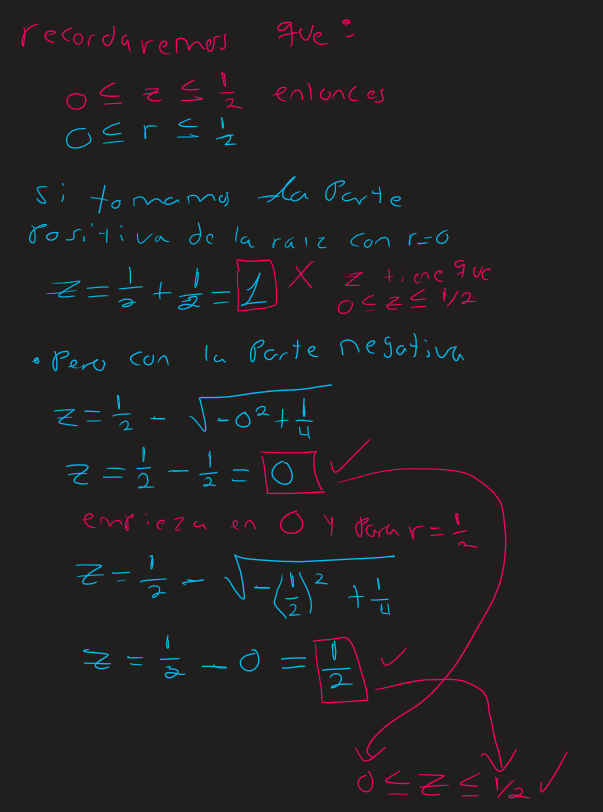 recordaremos que:
0 ≤ z ≤ 1/2 entonces
0 ≤ r ≤ 1/2
si tomamos la Parte
Positiva de la raiz con r=0
z = 1/2 + 1/2 = 1 × z tiene que
0 ≤ z ≤ 1/2
• Pero con la Parte negativa
z = 1/2 - √(-0² + 1/4)
z = 1/2 - 1/2 = 0 ✓
empieza en 0 y Para r = 1/2
z = 1/2 - √(-(1/2)² + 1/4)
z = 1/2 - 0 = 1/2 ✓
0 ≤ z ≤ 1/2 ✓